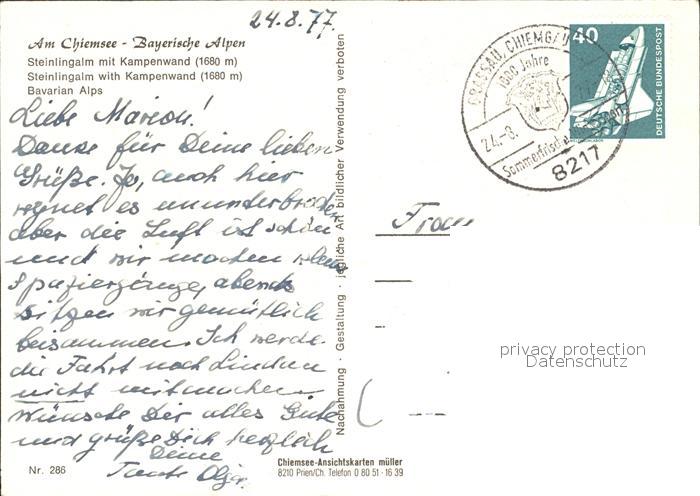 24.8.77.
Am Chiemsee - Bayerische Alpen
Steinlingalm mit Kampenwand (1680 m)
Steinlingalm with Kampenwand (1680 m)
Bavarian Alps
Liebe Marion!
Danke für Deine lieben
Grüße. Ja, auch hier
regnet es ununterbrochen
aber die Luft ist schön
und wir machen
Spaziergänge, abends
sitzen wir gemütlich
beisammen. Ich werde
die Fahrt nach Linden
nicht mitmachen.
Wünsche Dir alles Gute
und grüße Dich herzlich
Deine
Tante Olga
Nr. 286
Nachahmung · Gestaltung · jegliche Art bildlicher Verwendung verboten
Chiemsee-Ansichtskarten müller
8210 Prien/Ch. Telefon 0 80 51 - 16 39
GRASSAU, CHIEMGAU
1000 Jahre
24.-8.
Sommerfrische
8217
40
DEUTSCHE BUNDESPOST
Frau
privacy protection
Datenschutz